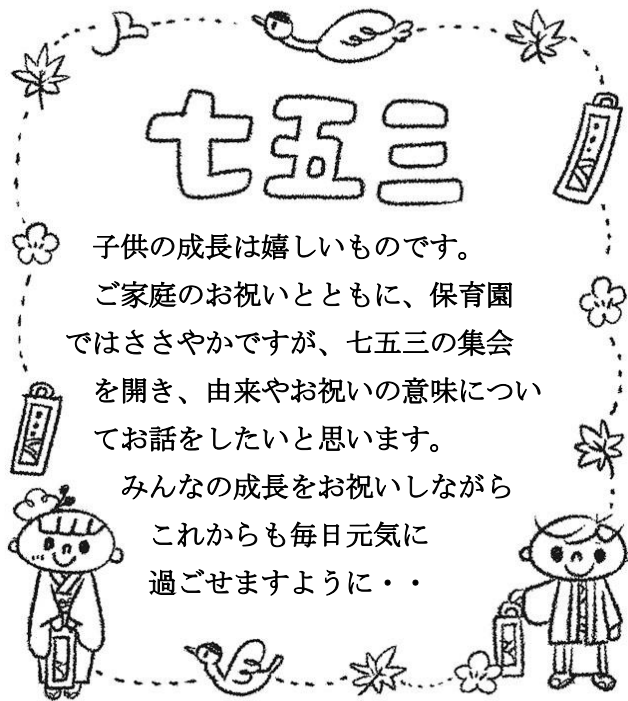 七五三
子供の成長は嬉しいものです。
ご家庭のお祝いとともに、保育園
ではささやかですが、七五三の集会
を開き、由来やお祝いの意味につい
てお話をしたいと思います。
みんなの成長をお祝いしながら
これからも毎日元気に
過ごせますように・・